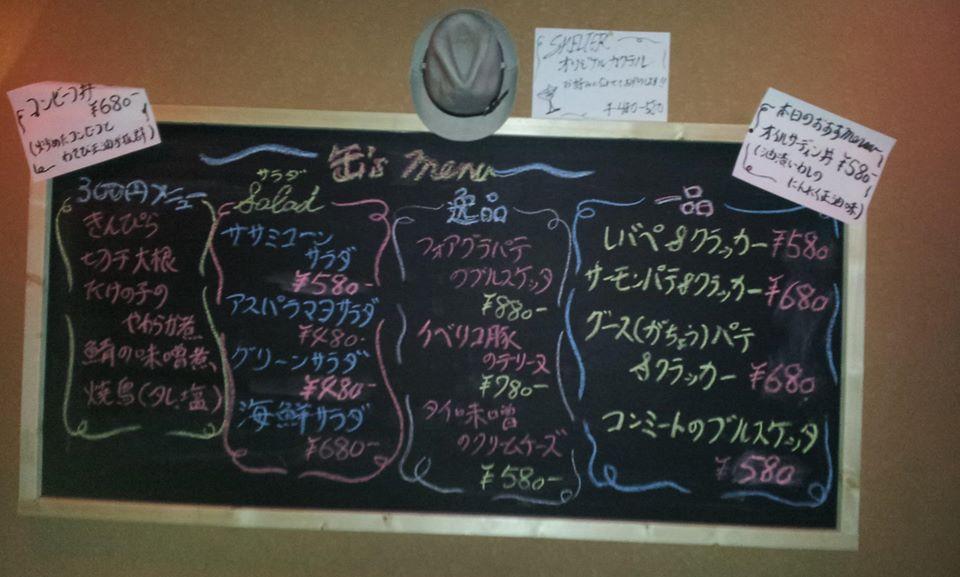 SHELTER
オリジナルカクテル
コンビーフ丼
¥680-
(炒めたコンビーフと
わさび正油が抜群)
本日のおすすmenu
オイルサーディン丼 ¥580-
(油漬いわしの
にんにく正油味)
缶's menu
300円メニュー
きんぴら
切り干大根
たけの子の
やわらか煮
鯖の味噌煮
焼鳥(タレ・塩)
サラダ
Salad
ササミコーン
サラダ
¥580-
アスパラマヨサラダ
¥480-
グリーンサラダ
¥480-
海鮮サラダ
¥680-
逸品
フォアグラパテ
のブルスケッタ
¥880-
イベリコ豚
のテリーヌ
¥780-
タイ味噌
のクリームチーズ
¥580-
一品
レバペ&クラッカー ¥580
サーモンパテ&クラッカー ¥680
グース(がちょう)パテ
&クラッカー ¥680
コンミートのブルスケッタ
¥580